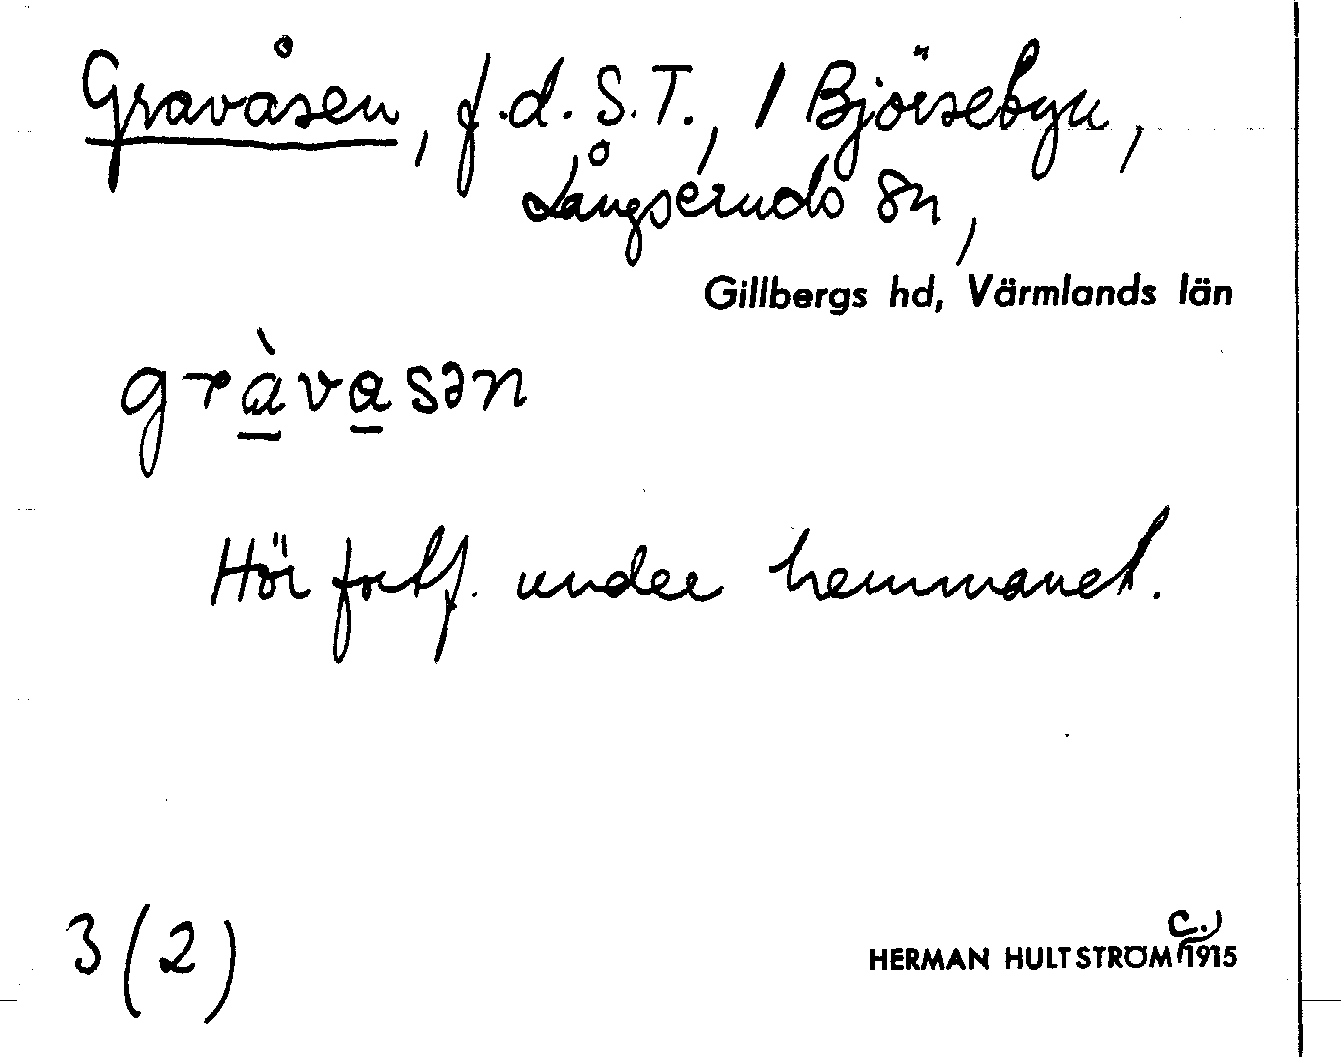 Gravåsen, f.d. S.T., 1 Björsebyn,
Långseruds sn,
Gillbergs hd, Värmlands län
gràvasən
Hör fortf. under hemmanet.
3 (2)
HERMAN HULTSTRÖM C.) 1915